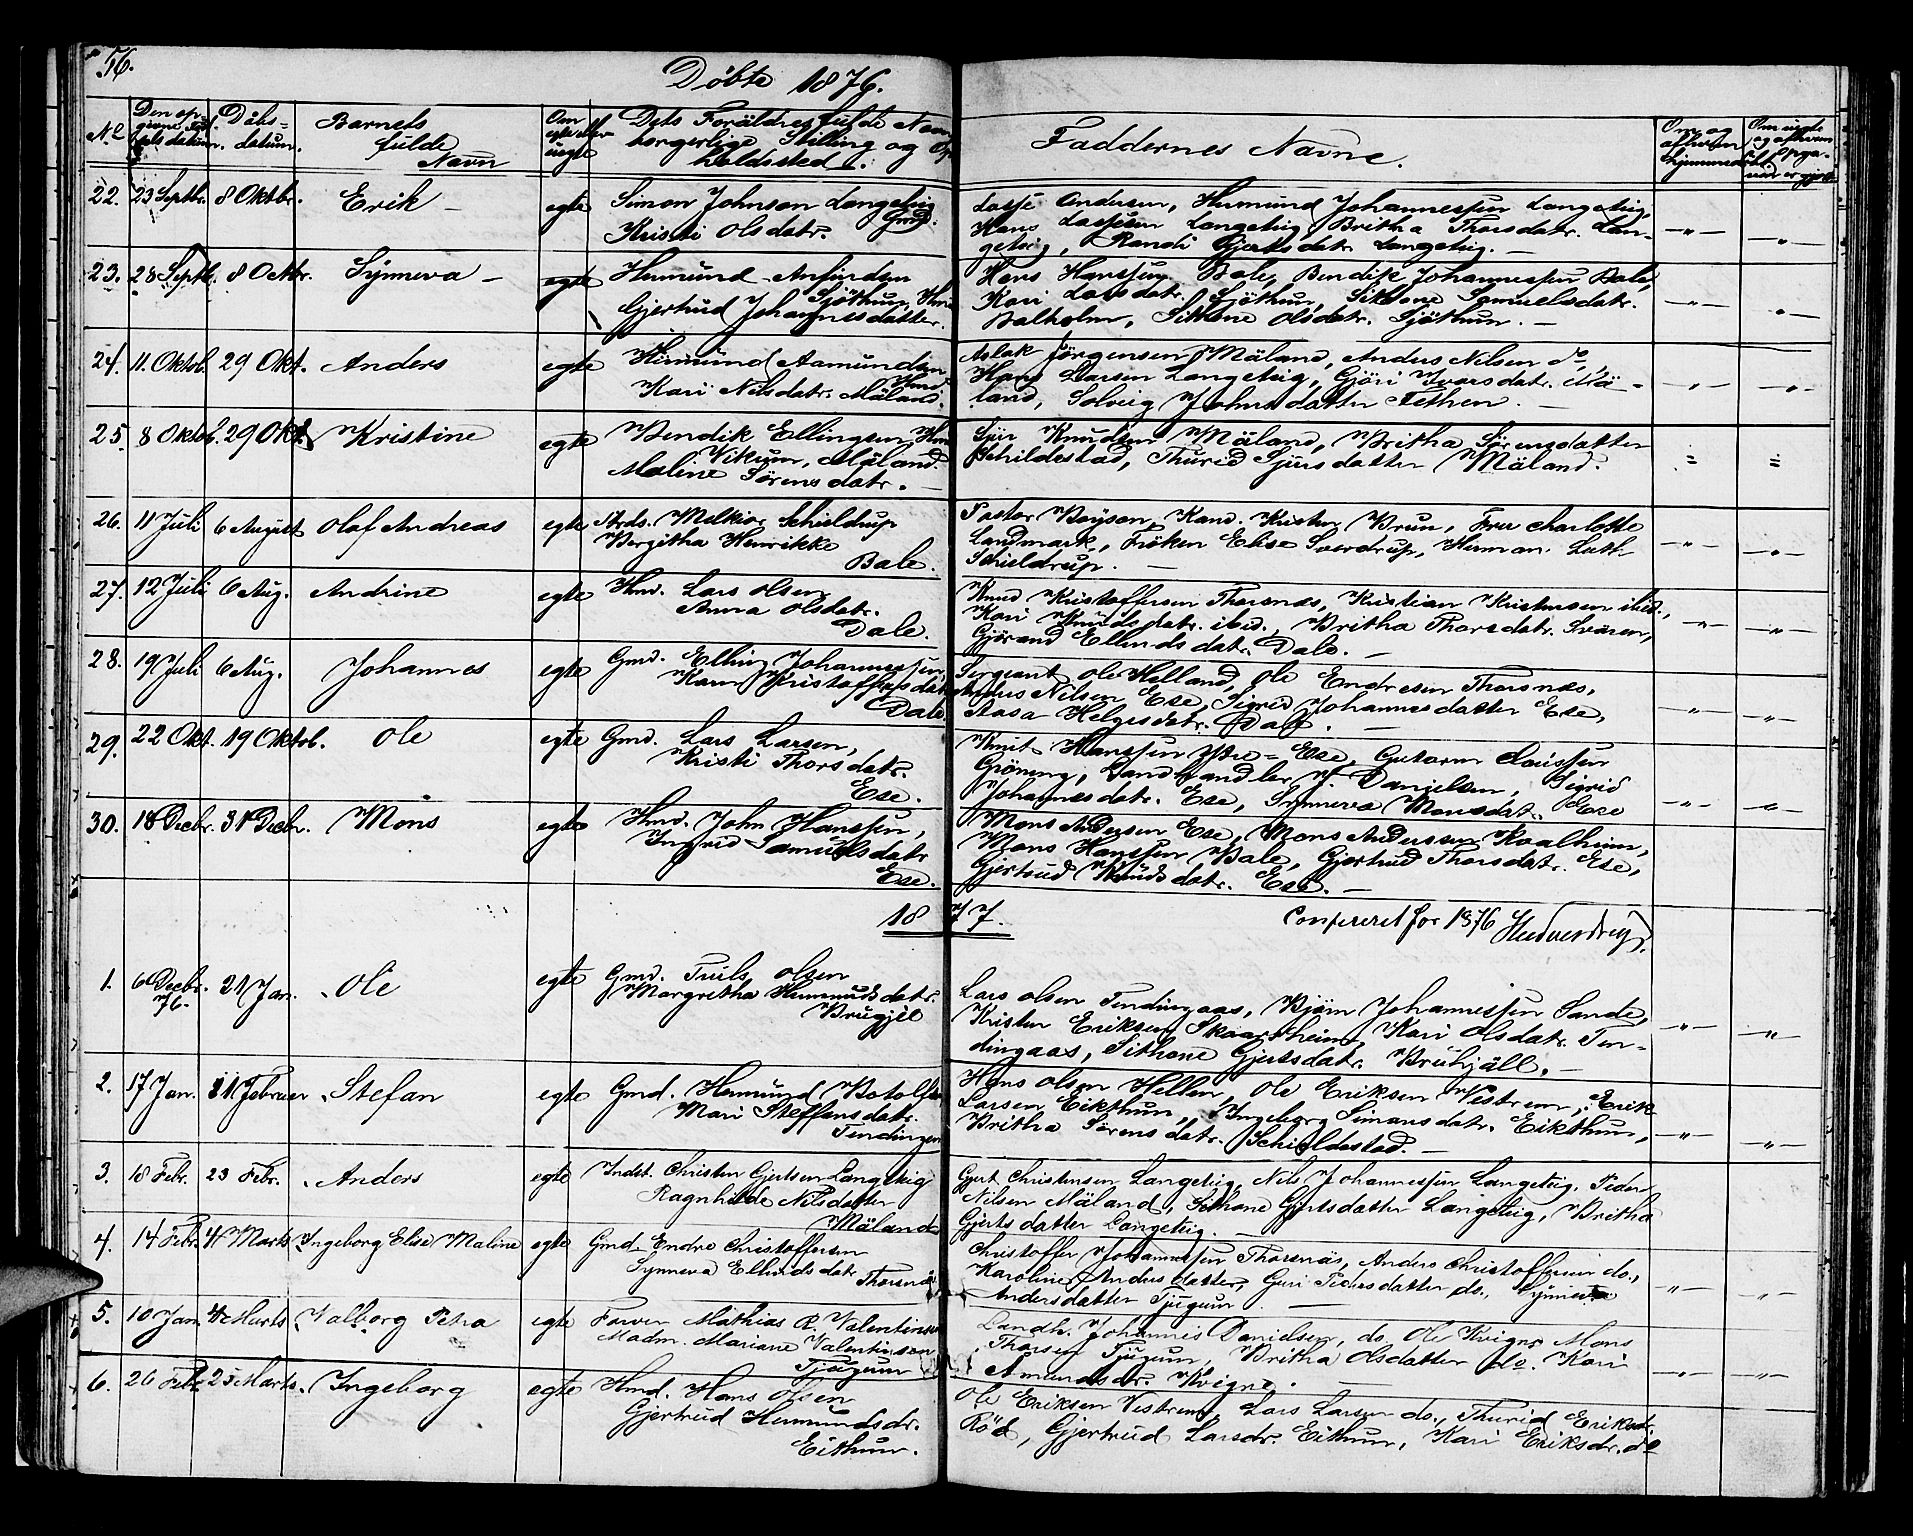 56.
Döbte 1876.
No Den op-givne Fødselsdatum. Daabs-datum. Barnets fulde Navn Om egte eller uegte Dets Foräldres fulde Navn borgerlige Stilling og Opholdssted. Faddernes Navne.
22. 23 Septbr. 8 Oktbr. Erik egte Simon Johnson Langeteig Gmd.
Kristi Olsdatr.
Lasse Andersen, Hemund Johannessen Langeteig,
Hans Lassesen Langeteig, Britha Thorsdatr. Lan-
geteig, Randi Gjertsdatr. Langeteig. —
23. 28 Septb. 8 Octbr. Synneva — egte Hemund Anfindsen
Sjöthun, Hmd
Gjertrud Johannesdatter.
Hans Hanssen Bale, Bendik Johannessen Bale,
Kari Larsdatr. Sjöthun, Sithone Samuelsdatr.
Balholm, Sithone Olsdatr. Sjöthun. —
24. 11. Oktob. 29 Okt. Anders egte Hemund Aamundsen
Hmd.
Kari Nilsdatr. Mäland.
Aslak Jörgensen Mäland, Anders Nilsen do,
Hans Larsen Langeteig, Gjöri Ivarsdatr. Mä-
land, Solveig Johnsdatter Fethen. —
25. 8 Oktob. 29 Okt. Kristine egte Bendik Ellingsen Hmd
Vikum, Mäland.
Malene Sörensdatr. —
Sjur Knudsen Mäland, Britha Sörensdatter
Schildestad, Thurid Sjursdatter Mäland.
26. 11 Juli 6 August Olaf Andreas egte Strds. Melkior Schieldrup
Bergitha Henrikke
Bale.
Pastor Boysen, Kand. Kristen Brun, Fru Charlotte
Landmark, Fröken Elise Sverdrup, Herman Lutt-
Schieldrup. —
27. 12 Juli 6 Aug. Andrine egte Hmd. Lars Olsen
Anna Olsdatr.
Dale.
Knud Kristoffersen Thorsnäs, Kristian Kristensen ibid.,
Kari Knudsdatr. ibid., Britha Thorsdatr. Svären,
Gjörand Ellendsdatr. Dale. —
28. 19 Juli 6 Aug. Johannes egte Gmd. Elling Johannessen
Karn Kristoffersdatr
Dale
Sergeant Ole Helland, Ole Endresen Thorsnäs,
Anders Nilsen Ese, Sigrid Johannesdatter Ese,
Aasa Helgesdatr. Dale. —
29. 22 Okt. 19 Oktob. Ole egte Gmd. Lars Larsen,
Kristi Thorsdatr.
Ese.
Knut Hanssen Ytre-Ese, Gutorm Claussen
Gröning, Landhandler J. Danielsen, Sigrid
Johannesdatr. Ese, Synneva Monsdatr. Ese
30. 18 Decbr. 31 Decbr. Mons egte Hmd. John Hanssen,
Ingrid Samuelsdatr
Ese.
Mons Andersen Ese, Mons Anderssen Kaalheim,
Mons Hanssen Bale, Gjertrud Thorsdatr. Ese,
Gjertrud Knudsdatr. Ese. —
1877.
Confereret for 1876
1. 6 Decbr. 76. 21 Jan. Ole egte Gmd. Truls Olsen
Margretha Hemundsdatr.
Brugjel
Lars Olsen Tendingaas, Björn Johannessen Sande,
Kristen Eriksen Skaartheim, Kari Olsdatr. Ten-
dingaas, Sithone Gjertsdatr. Bruhjäll. —
2. 17 Jan. 11 Februar Stefan egte Gmd. Hemund Botolfsen
Mari Steffensdatr.
Tendingen
Hans Olsen Hellen, Ole Eriksen Vestrem, Erik
Larsen Eikthun, Ingeborg Simonsdatr. Eikthun,
Britha Sörensdatr. Schieldestad. —
3. 18 Febr. 23 Febr. Anders egte Indst. Christen Gjertsen Langeteig
Ragnhilde Nilsdatter
Mäland
Gjert Christensen Langeteig, Nils Johannessen Langeteig, Peder
Nilsen Mäland, Sithone Gjertsdatter Langeteig, Britha
Gjertsdatter Langeteig. —
4. 14 Febr. 4 Marts Ingeborg Elise Maline egte Gmd. Endre Christoffersen
Synneva Ellendsdatr
Thorsnäs
Christoffer Johannessen Thorsnäs, Anders Christoffersen do.,
Karoline Andersdatter, Guri Pedersdatter do., Synneva
Andersdatter Tjugum. —
5. 10 Jan 4 Marts Valborg Petra egte Farver Mathias R. Valentinsen
Madm. Mariane Valentinsen
Tjugum
Landh. Johannes Danielsen, do. Ole Kvigne, Mons
Thorsen Tjugum, Britha Olsdatter do. Kari
Amundsdr. Kvigne. —
6. 26 Febr 25 Marts. Ingeborg egte Hmd. Hans Olsen
Gjertrud Hemundsdr.
Eithun.
Ole Eriksen Vestrem, Lars Larsen do., Thurid Eriksdr.
Röd, Gjertrud Larsdr. Eithun, Kari Eriksdr. do